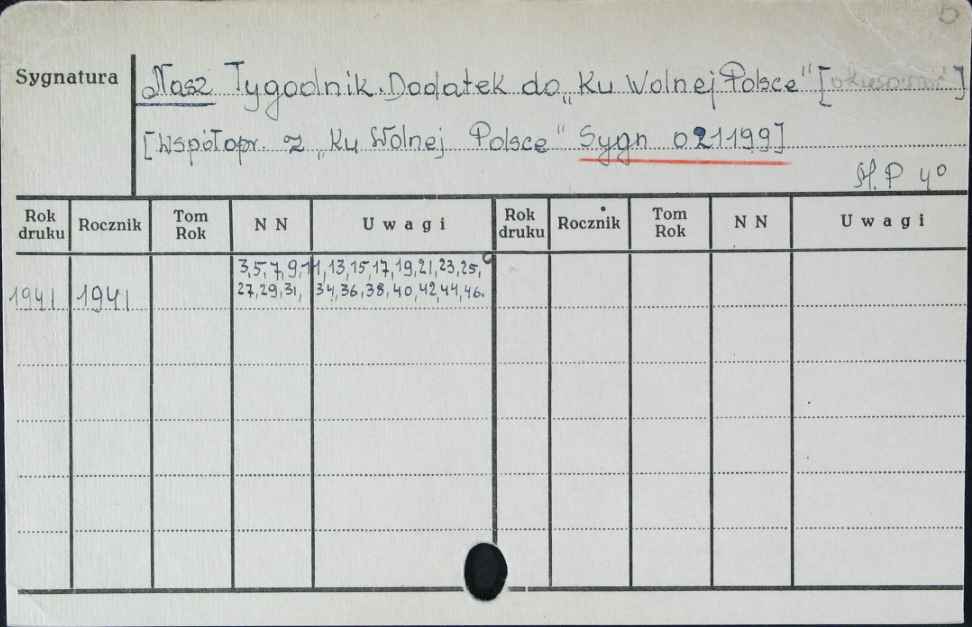 5
Sygnatura
Nasz Tygodnik. Dodatek do „Ku Wolnej Polsce" [ ]
[Współopr. z „Ku Wolnej Polsce" Sygn 021199]
M.P 4°
Rok druku Rocznik Tom Rok N N Uwagi Rok druku Rocznik Tom Rok N N Uwagi
3,5,7,9,11,13,15,17,19,21,23,25,
1941 1941 27,29,31, 34,36,38,40,42,44,46.